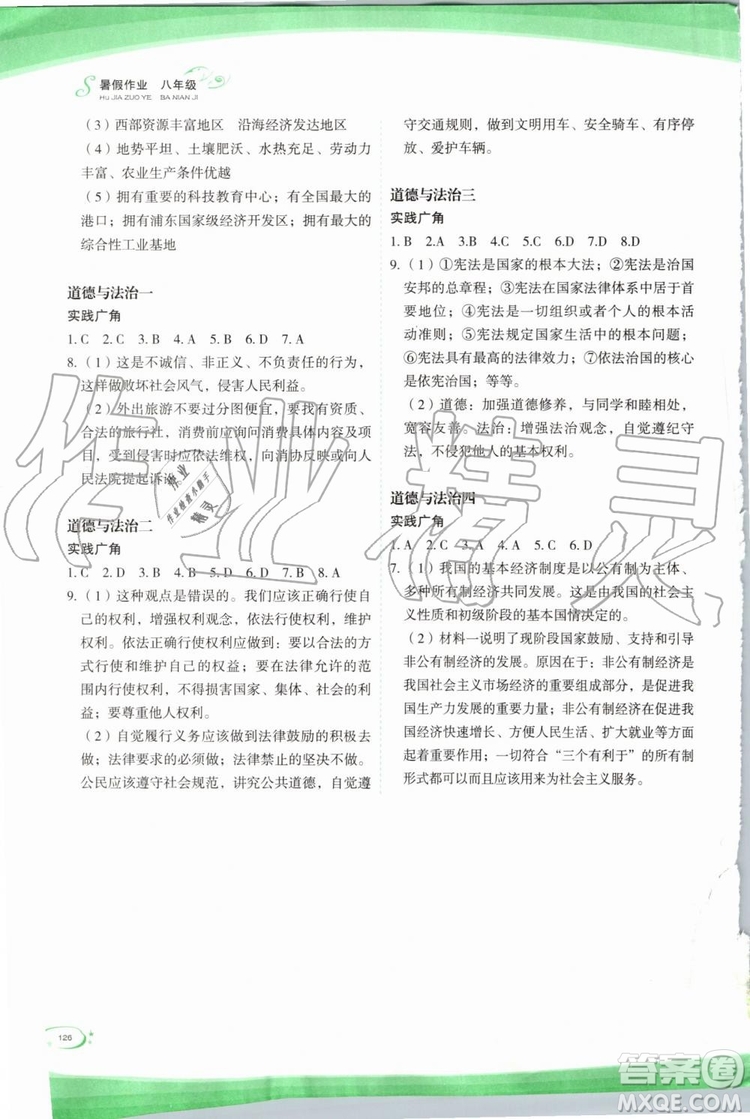 暑假作业 八年级
HU JIA ZUO YE BA NIAN JI
（3）西部资源丰富地区 沿海经济发达地区
（4）地势平坦、土壤肥沃、水热充足、劳动力
丰富、农业生产条件优越
（5）拥有重要的科技教育中心；有全国最大的
港口；拥有浦东国家级经济开发区；拥有最大的
综合性工业基地
道德与法治一
实践广角
1. C 2. D 3. B 4. A 5. B 6. D 7. A
8.（1）这是不诚信、非正义、不负责任的行为，
这样做败坏社会风气，侵害人民利益。
（2）外出旅游不要过分图便宜，要找有资质、
合法的旅行社，消费前应询问消费具体项目和内
容，受到侵害应依法维权，向消协反映或向人
民法院提起诉讼。
道德与法治二
实践广角
1. C 2. D 3. B 4. A 5. B 6. D 7. D 8. A
9.（1）这种观点是错误的。我们应该正确行使自
己的权利，增强权利观念，依法行使权利，维护
权利。依法正确行使权利应做到：要以合法的方
式行使和维护自己的权益；要在法律允许的范
围内行使权利，不损害国家、集体、社会的利
益；要尊重他人权利。
（2）自觉履行义务应该做到法律鼓励的积极去
做；法律要求的必须做；法律禁止的坚决不做。
公民应该遵守社会规范，讲究公共道德，自觉遵
守交通规则，做到文明用车、安全骑车、有序停
放、爱护车辆。
道德与法治三
实践广角
1. B 2. A 3. B 4. C 5. C 6. D 7. D 8. D
9.（1）①宪法是国家的根本大法；②宪法是治国
安邦的总章程；③宪法在国家法律体系中居于首
要地位；④宪法是一切组织或者个人的根本活
动准则；⑤宪法规定国家生活中的根本问题；
⑥宪法具有最高的法律效力；⑦依法治国的核心
是依宪治国；等等。
（2）道德：加强道德修养，与同学和睦相处，
宽容友善。法治：增强法治观念，自觉遵纪守
法，不侵犯他人的基本权利。
道德与法治四
实践广角
1. A 2. C 3. D 4. C 5. D 6. D
7.（1）我国的基本经济制度是以公有制为主体、
多种所有制经济共同发展。这是由我国的社会主
义性质和初级阶段的基本国情决定的。
（2）材料一说明了现阶段国家鼓励、支持和引导
非公有制经济的发展。原因在于：非公有制经济是
我国社会主义市场经济的重要组成部分，是我国
生产力发展的重要力量；非公有制经济在促进
国民经济快速增长、方便人民生活、扩大就业等方面
起着重要作用；一切符合“三个有利于”的所有制
形式都可以而且应该用来为社会主义服务。
126
作业精灵
作业
作业检查小助手
精灵
答案圈
MXQE.COM